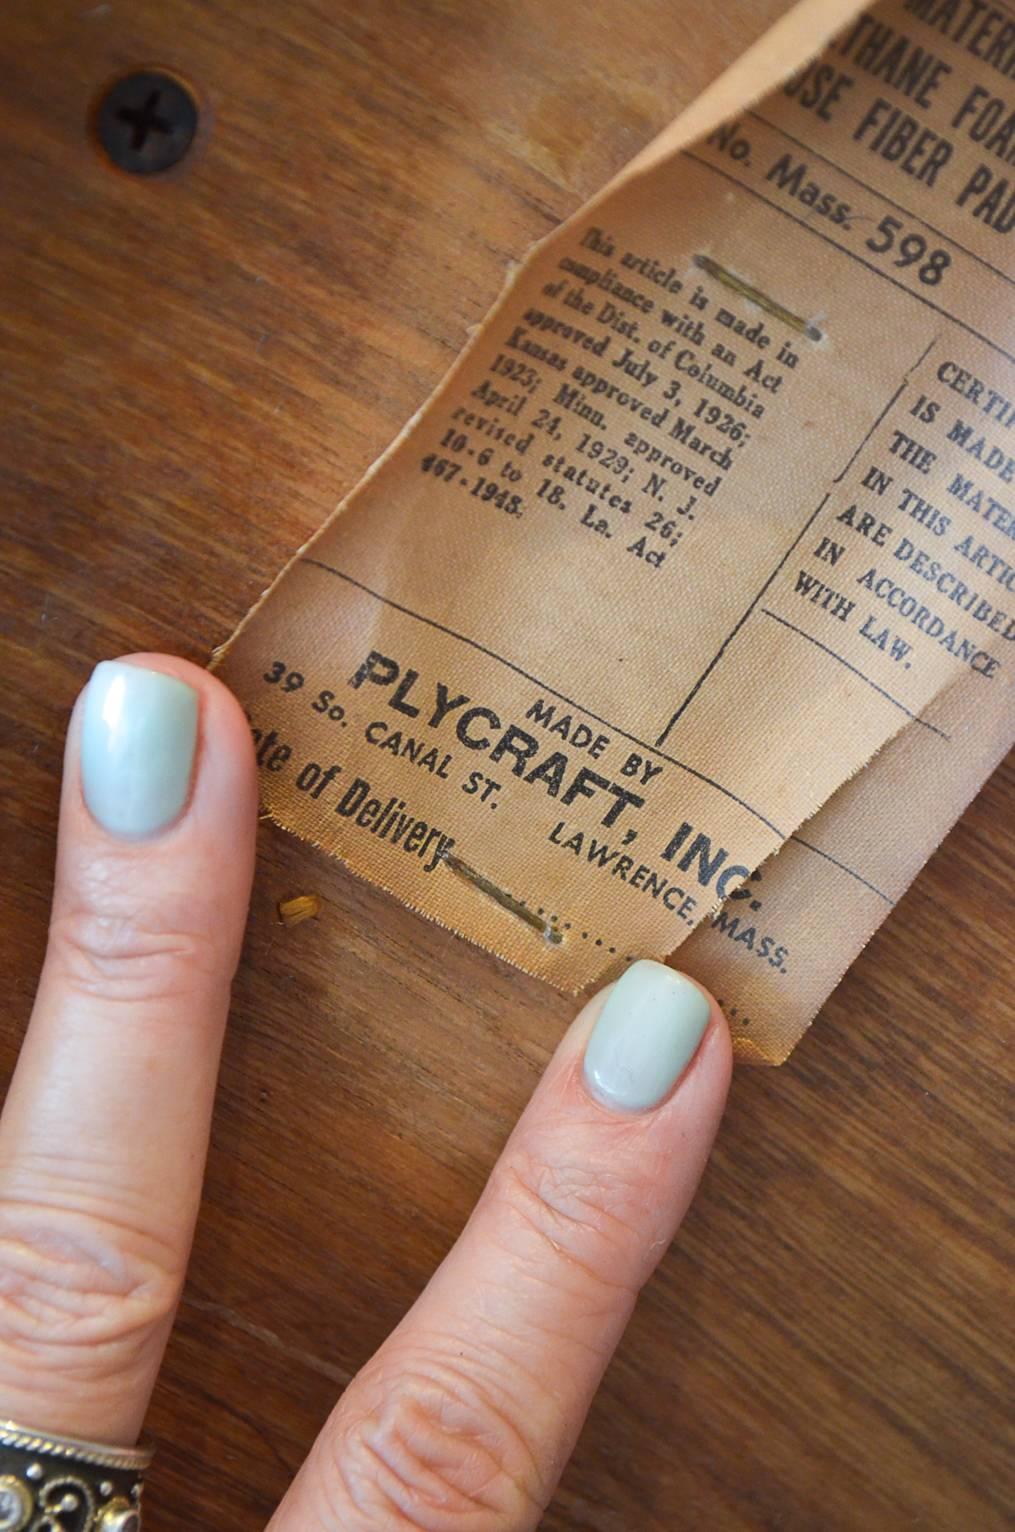 MATERI
THANE FOA
USE FIBER PAD
No. Mass. 598
This article is made in
compliance with an Act
of the Dist. of Columbia
approved July 3, 1926;
Kansas approved March
1923; Minn. approved
April 24, 1929; N. J.
revised statutes 26;
10-6 to 18. La. Act
467-1948.
CERTIF
IS MADE
THE MATER
IN THIS ARTIC
ARE DESCRIBED
IN ACCORDANCE
WITH LAW.
MADE BY
PLYCRAFT, INC.
39 So. CANAL ST. LAWRENCE, MASS.
ate of Delivery